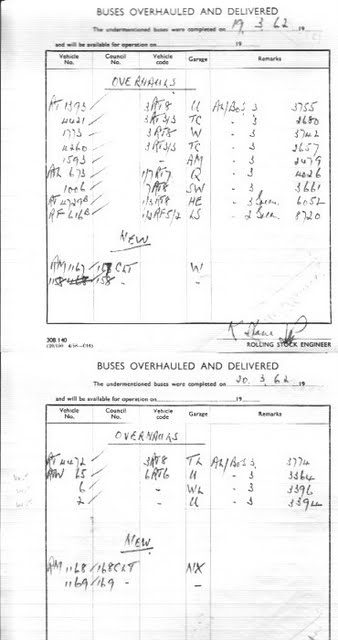 BUSES OVERHAULED AND DELIVERED
The undermentioned buses were completed on 19. 3. 62 19
and will be available for operation on 19
Vehicle No. Council No. Vehicle code Garage Remarks
OVERHAULS
RT 1393 3RT8 U AL/Bo5 3 3755
4421 3RT3/3 TC - 3 2680
1773 3RT8 W - 3 3742
4260 3RT3/3 TC - 3 2657
1593 - AM - 3 2479
RL 673 1/7RT7 Q - 3 4026
1006 7RT8 SW - 3 3661
RT 4729 HE - 3 6052
RF 616 LS - 2 8720
NEW
RM 1167 167 CLT W -
1158 158 - -
308 140 ROLLING STOCK ENGINEER
BUSES OVERHAULED AND DELIVERED
The undermentioned buses were completed on 20. 3. 62 19
and will be available for operation on 19
Vehicle No. Council No. Vehicle code Garage Remarks
OVERHAULS
RT 4472 3RT8 TL AL/Bo5 3 3774
RW 65 6RT6 U - 3 3364
6 - WL - 3 3396
2 - U - 3 3394
NEW
RM 1168 168 CLT NX -
1169 169 - -